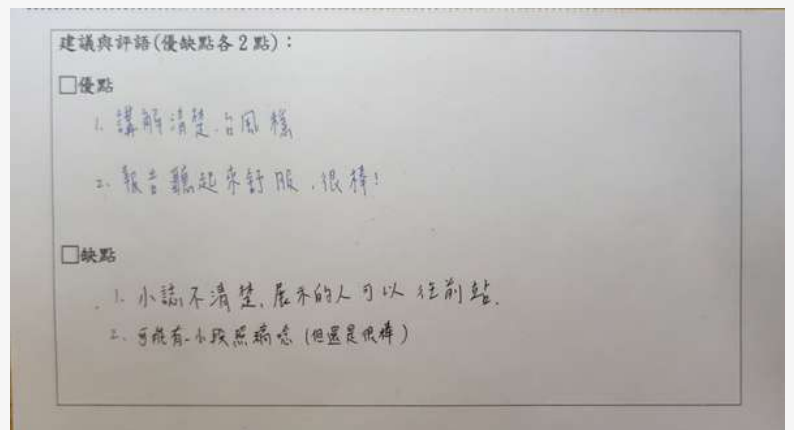 建議與評語(優缺點各2點):
□優點
1. 講解清楚、台風穩
2. 報告聽起來舒服、很棒!
□缺點
1. 小誌不清楚、展示的人可以往前站.
2. 可能有一小段照稿唸 (但還是很棒)